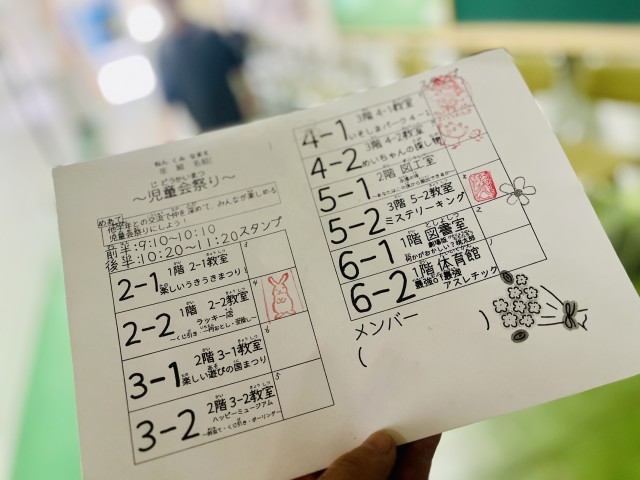 年 組 名前
じどうかいまつ
～児童会祭り～
めあて
他学年との交流で仲を深めて、みんなが楽しめる
児童会祭りにしよう!
前半:9:10～10:10
後半:10:20～11:20
スタンプ
2-1
1階 2-1教室
楽しいうきうきまつり
2-2
1階 2-2教室
ラッキー店
3-1
2階 3-1教室
楽しい遊びの国まつり
3-2
2階 3-2教室
ハッピーミュージアム
4-1
3階 4-1教室
4-2
3階 4-2教室
めいちゃんの探し物
5-1
2階 図工室
5-2
3階 5-2教室
ミステリーキング
6-1
1階 図書室
6-2
1階 体育館
最強の1最強
アスレチック
メンバー
( )